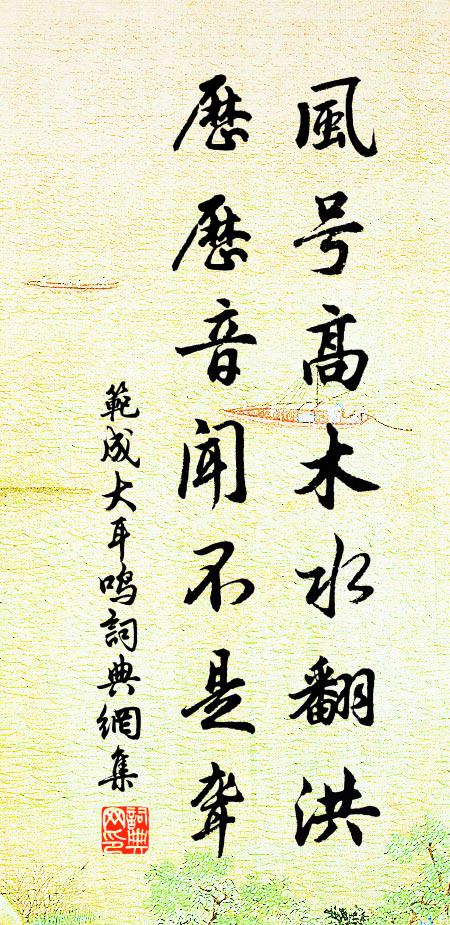 風号高木水翻洪
歷歷音闻不是聋
範成大耳鸣詞典網集
詞典网印